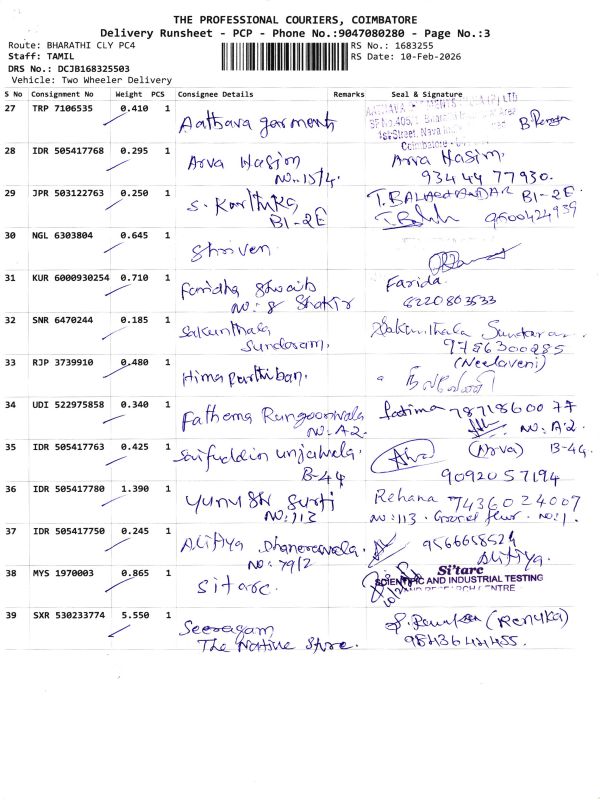 THE PROFESSIONAL COURIERS, COIMBATORE
Delivery Runsheet - PCP - Phone No.:9047080280 - Page No.:3
Route: BHARATHI CLY PC4 RS No.: 1683255
Staff: TAMIL RS Date: 10-Feb-2026
DRS No.: DCJB168325503
Vehicle: Two Wheeler Delivery
S No Consignment No Weight PCS Consignee Details Remarks Seal & Signature
27 TRP 7106535 0.410 1
Aathava garments
1st Street, Nava
Coimbatore
28 IDR 505417768 0.295 1
Arva Hasim Arva Hasim.
No. 15/4. 93444 77930.
29 JPR 503122763 0.250 1
S. Karthika T. BALACHANDAR B1-2E
B1-2E 9500424939
30 NGL 6303804 0.645 1
Shriven
31 KUR 6000930254 0.710 1
Faridha Shoaib Farida.
No: 8 Shakir 8220803533
32 SNR 6470244 0.185 1
Sakunthala Sakunthala Sundaram
Sundaram. 9786300285
33 RJP 3739910 0.480 1
(Neeloveni)
Hima Parthiban.
34 UDI 522975858 0.340 1
Fathema Rangoonwala Fatima 7871860077
No: A2. No: A2.
35 IDR 505417763 0.425 1
Saifuddin unjawala. (Arva) B-44
B-44 9092057194
36 IDR 505417780 1.390 1
Yunush Surti Rehana 7436024007
No: 113 No: 113. Ground floor. No: 1.
37 IDR 505417750 0.245 1
Alifiya Dhanerawala. 9566658524
No: 79/2 Alifiya.
38 MYS 1970003 0.865 1
Sitarc. Si'tarc
SCIENTIFIC AND INDUSTRIAL TESTING
AND RESEARCH CENTRE
39 SXR 530233774 5.550 1
Seeragam (RENUKA)
The Native Store. 98436 41455.